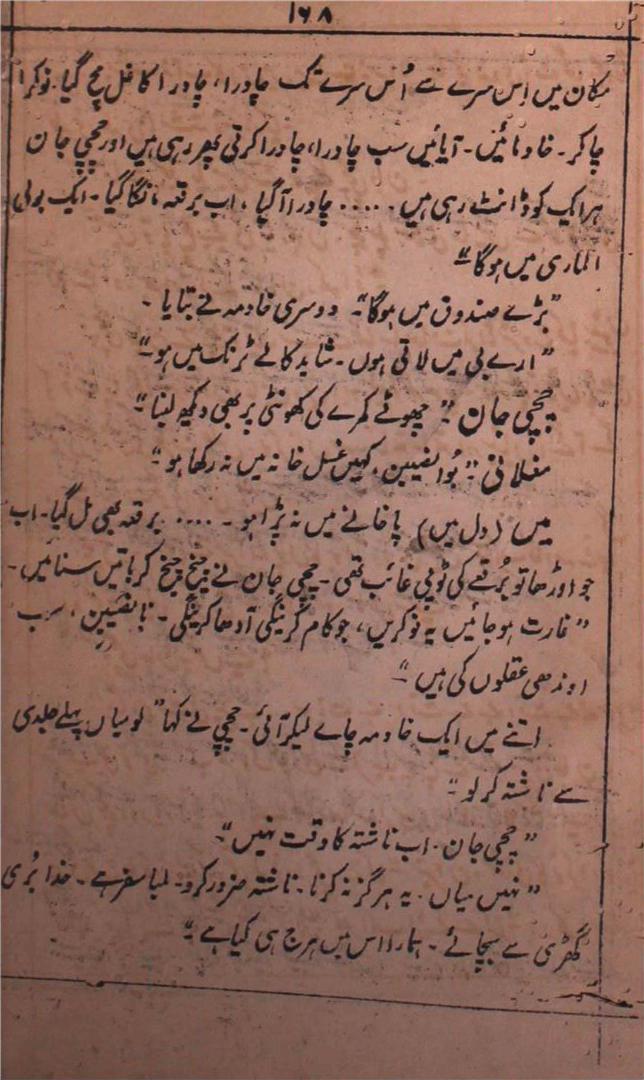 ۱۶۸
مکان میں اِس سرے سے اُس سرے تک چادرا، چادرا کا غل مچ گیا۔ نوکر
چاکر۔ خادمائیں۔ آیائیں سب چادرا، چادرا کرتی پھر رہی ہیں اور چچی جان
ہر ایک کو ڈانٹ رہی ہیں۔ ..... چادرا آگیا، اب برقعہ مانگا گیا۔ ایک بولی
الماری میں ہوگا"
"بڑے صندوق میں ہوگا"۔ دوسری خادمہ نے بتایا۔
"ارے بی میں لاتی ہوں۔ شاید کالے ٹرنک میں ہو"
چچی جان "چھوٹے کمرے کی کھونٹی پر بھی دیکھ لینا"
مغلانی "بُوا نصیبن، کہیں غسل خانہ میں نہ رکھا ہو"
میں (دل میں) پاخانے میں نہ پڑا ہو۔ .... برقعہ بھی مل گیا۔ اب
جو اوڑھا تو بُرقعے کی ٹوپی غائب تھی۔ چچی جان نے چیخ چیخ کر باتیں سنائیں۔
"غارت ہو جائیں یہ نوکریں، جو کام کرینگی آدھا کرینگی۔ نصیبن، سب
اوندھی عقلوں کی ہیں"
اتنے میں ایک خادمہ چاے لیکر آئی۔ چچی نے کہا "لو میاں پہلے جلدی
سے ناشتہ کر لو"
"چچی جان۔ اب ناشتہ کا وقت نہیں"
"نہیں میاں۔ یہ ہرگز نہ کرنا۔ ناشتہ ضرور کرو۔ لمبا سفر ہے۔ خدا بُری
گھڑی سے بچائے۔ ہمارا اس میں ہرج ہی کیا ہے"